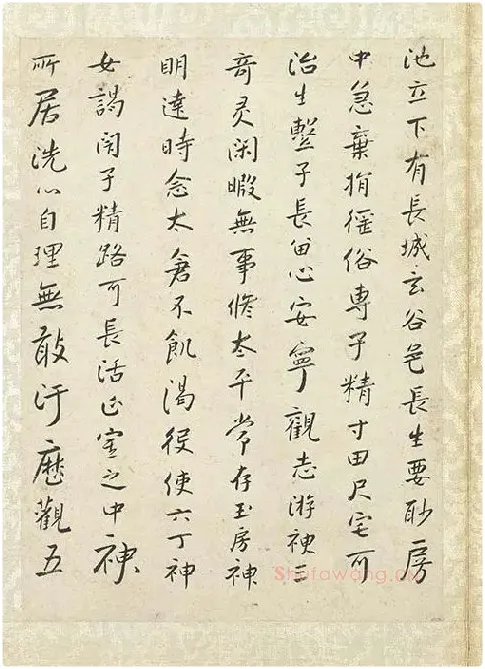 池立下有長城玄谷邑長生要眇房
中急棄捐徭俗專子精寸田尺宅可
治生繫子長畄心安寧觀志游神三
奇灵閑暇無事脩太平常存玉房神
明達時念太倉不飢渴役使六丁神
女謁閉子精路可長活正室之中神
所居洗心自理無敢汙歷觀五
Shufawang.cn